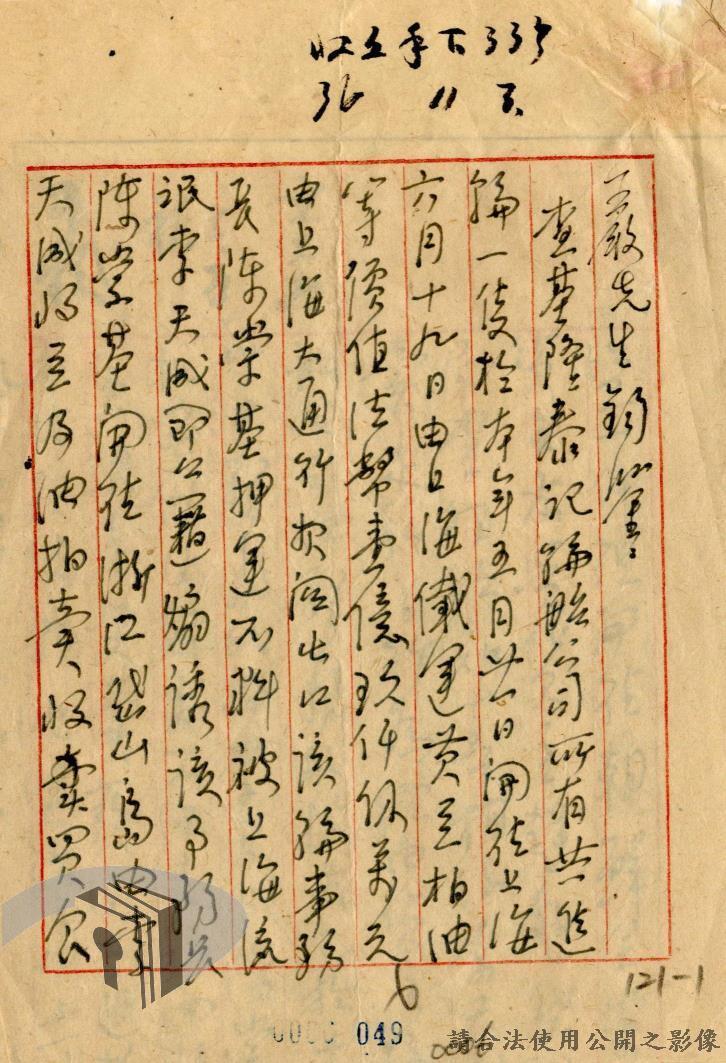 36 11
王嚴先生鈞鑒：
查基隆泰記輪船公司所有共進
輪一隻於本年五月廿一日開往上海
六月十九日由上海儎運黃豆柏油
等價值法幣壹億玖仟伍萬元
由上海大通行報關出口該輪事務
長陳崇基押運不料被上海流
氓李天成即公羅煽誘該事務長
陳崇基開往浙江岱山島由李
天成將豆及油拍賣收賣買食
121-1
0000 049
請合法使用公開之影像